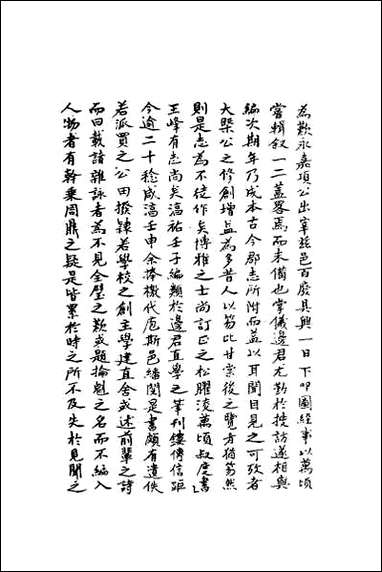 為歎永嘉項公出宰玆邑百廢具興一日下叩圖經事以萬頃
嘗輯叙一二盖畧焉而未備也掌儀邊君尤勤於搜訪遂相與
編次期年乃成本古今郡志所附而益以耳聞目見之可攷者
大槩公之修創增益為多昔人以笏比甘棠後之覽者猶笏然
則是志為不徒作矣博雅之士尚訂正之松臞淩萬頃叔度書
玉峰有志尚矣淳祐壬子編類於邊君直學之筆刊縷傳信距
今逾二十稔咸淳壬申余捧檄代庖斯邑繙閱是書頗有遺佚
若派買之公田撥隸若學校之創主學建直舍或述前輩之詩
而曰載諸雜詠者為不見全璧之歎或題掄魁之名而不編入
人物者有幹棄周鼎之疑是皆累於時之所不及失於見聞之